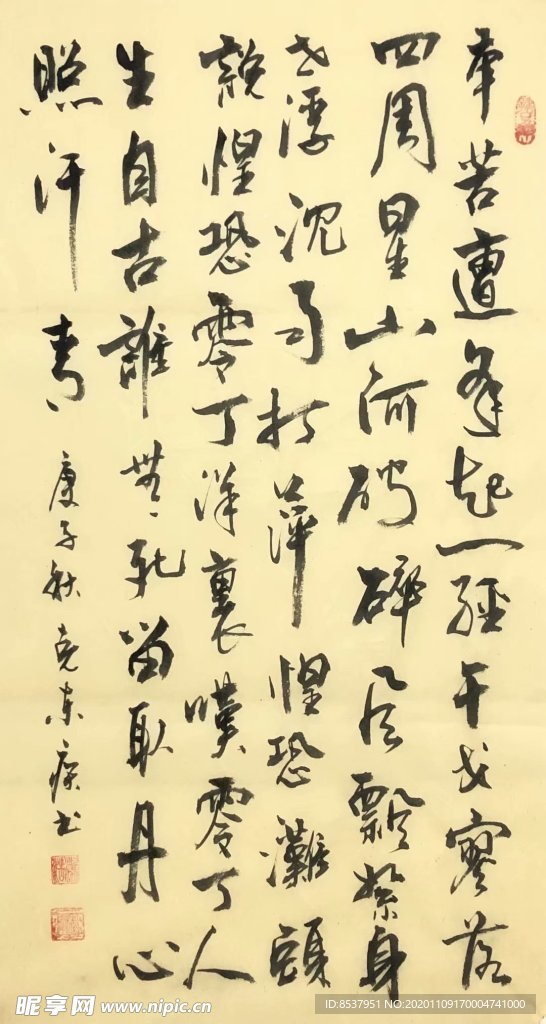 辛苦遭逢起一經干戈寥落
四周星山河破碎風飄絮身
世浮沈雨打萍惶恐灘頭
說惶恐零丁洋裏嘆零丁人
生自古誰無死留取丹心
照汗青
庚子秋東書
昵享网 www.nipic.cn
ID:8537951 NO:20201109170004741000